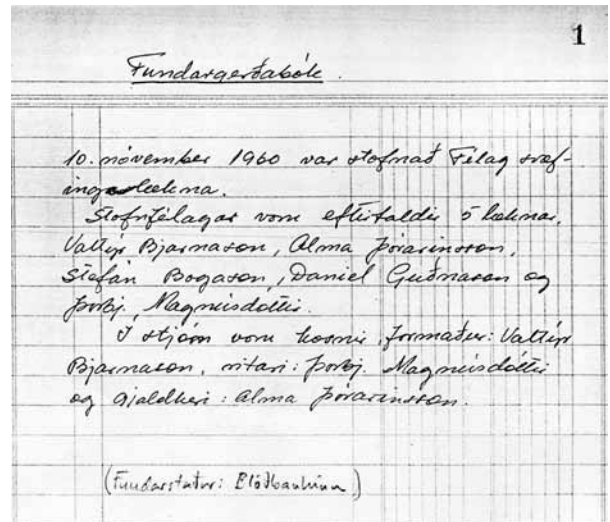 1
Fundargerðabók.
10. nóvember 1960 var stofnað Félag svæf-
ingalækna.
Stofnfélagar voru eftirtaldir 5 læknar,
Valtýr Bjarnason, Alma Þórarinsson,
Stefán Bogason, Daníel Guðnason og
Þorbj. Magnúsdóttir.
Í stjórn voru kosnir, formaður: Valtýr
Bjarnason, ritari: Þorbj. Magnúsdóttir
og gjaldkeri: Alma Þórarinsson.
(Fundarstaður: Blóðbankinn)